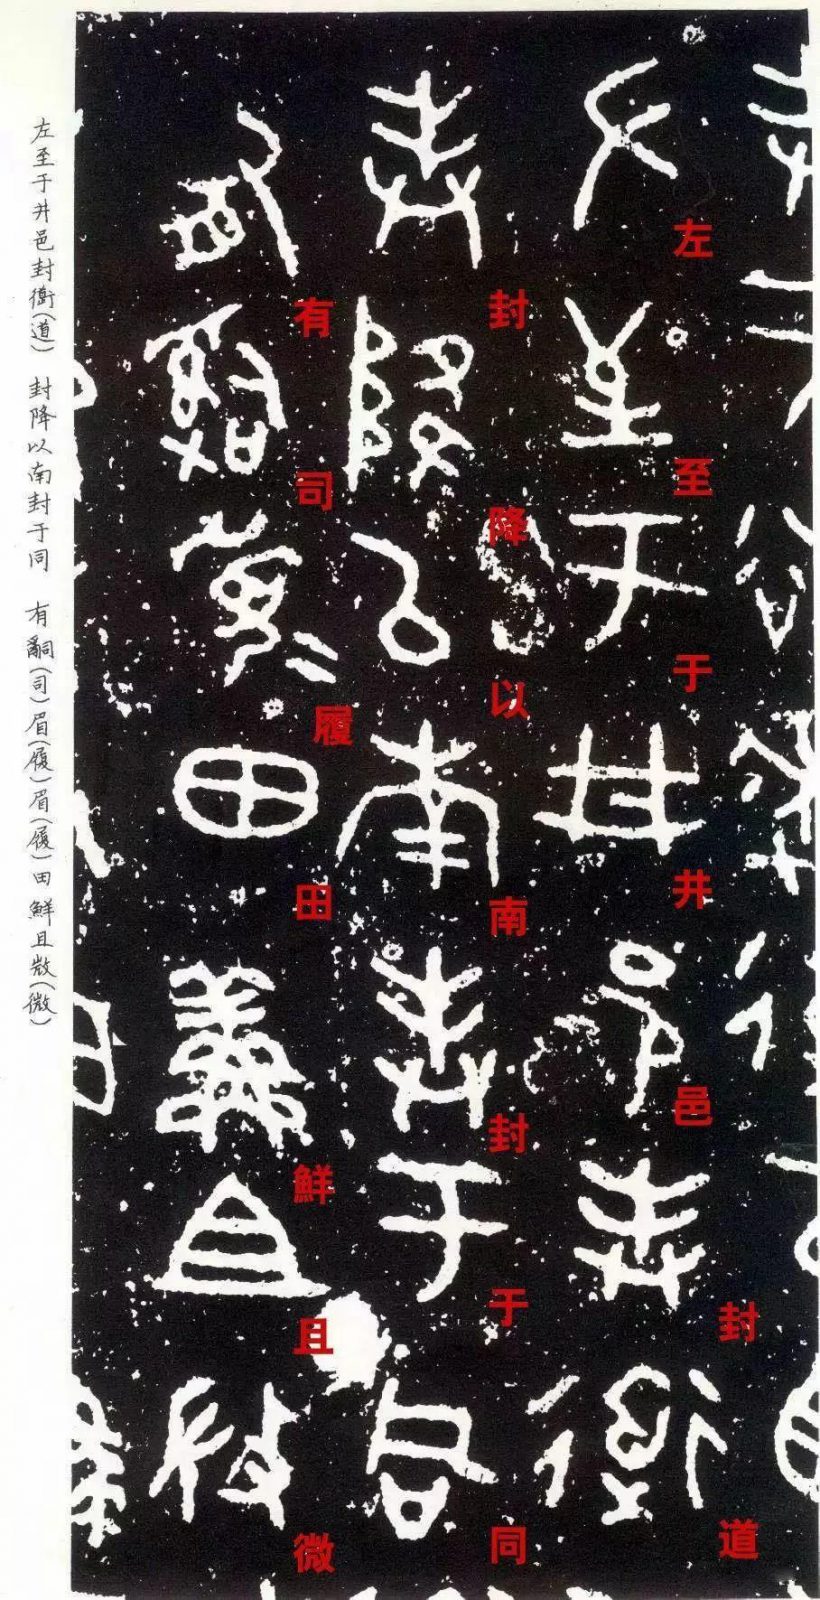 左至于井邑封道
封降以南封于同
有司履田鮮且微
左至于井邑封衜(道) 封降以南封于同 有𤔲(司)眉(履)眉(履)田鮮且𢼸(微)